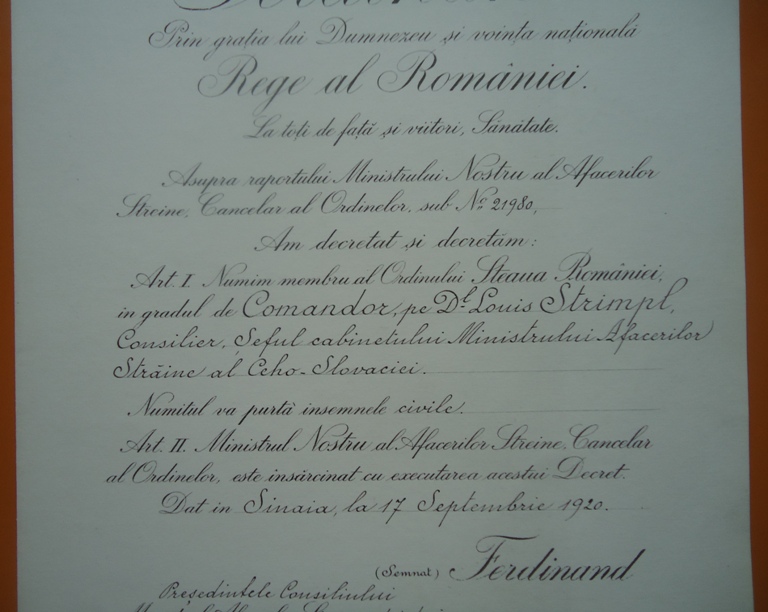 Prin grația lui Dumnezeu și voința națională
Rege al României.
La toți de față și viitori, Sănătate.
Asupra raportului Ministrului Nostru al Afacerilor
Streine, Cancelar al Ordinelor, sub No. 21980,
Am decretat și decretăm:
Art. I. Numim membru al Ordinului Steaua României,
in gradul de Comandor, pe Dl. Louis Strimpl,
Consilier, Șeful cabinetului Ministrului Afacerilor
Străine al Ceho-Slovaciei.
Numitul va purtà insemnele civile.
Art. II. Ministrul Nostru al Afacerilor Streine, Cancelar
al Ordinelor, este insărcinat cu executarea acestui Decret.
Dat in Sinaia, la 17 Septembrie 1920.
(Semnat) Ferdinand
Președintele Consiliului